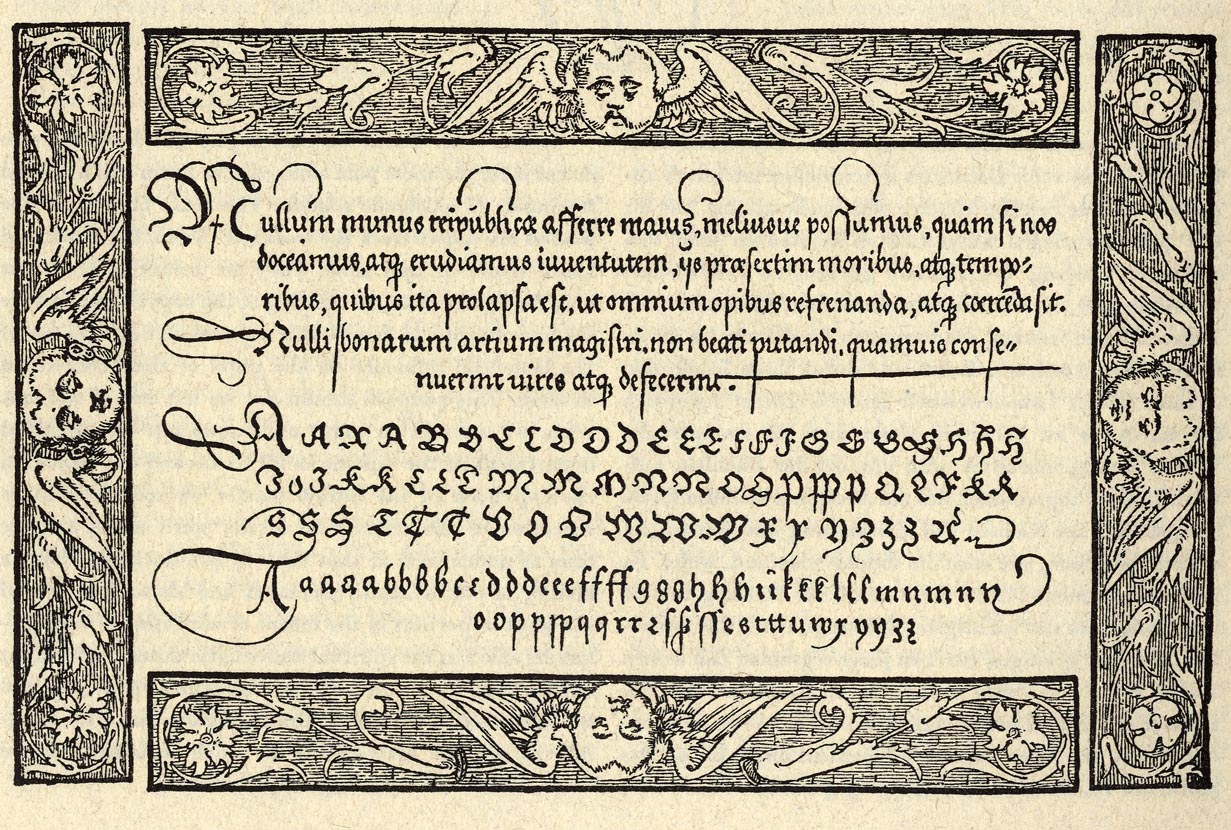 Nullum munus reipublicæ afferre maius, meliusve possumus, quàm si nos
doceamus, atq; erudiamus iuventutem, ijs præsertim moribus, atq; tempo-
ribus, quibus ita prolapsa est, ut omnium opibus refrenanda, atq; coërcẽda sit.
Nullis bonarum artium magistri, non beati putandi, quamuis conse-
nuerint vires atq; defecerint.
A A A A B B B C C C D D D D E E E E F F F F G G G G H H H H
I J J K K K L L T M M M M N N N O O P P P P Q Q R R R
S S S T T T V V V W W W X X Y Y Z Z Z
A a a a a b b b b c c c d d d d e e e f f f f g g g g h h h h i i k k k l l l m n m n n
o o p p p p q q r r r s s s s s t t t u w x y y y z z